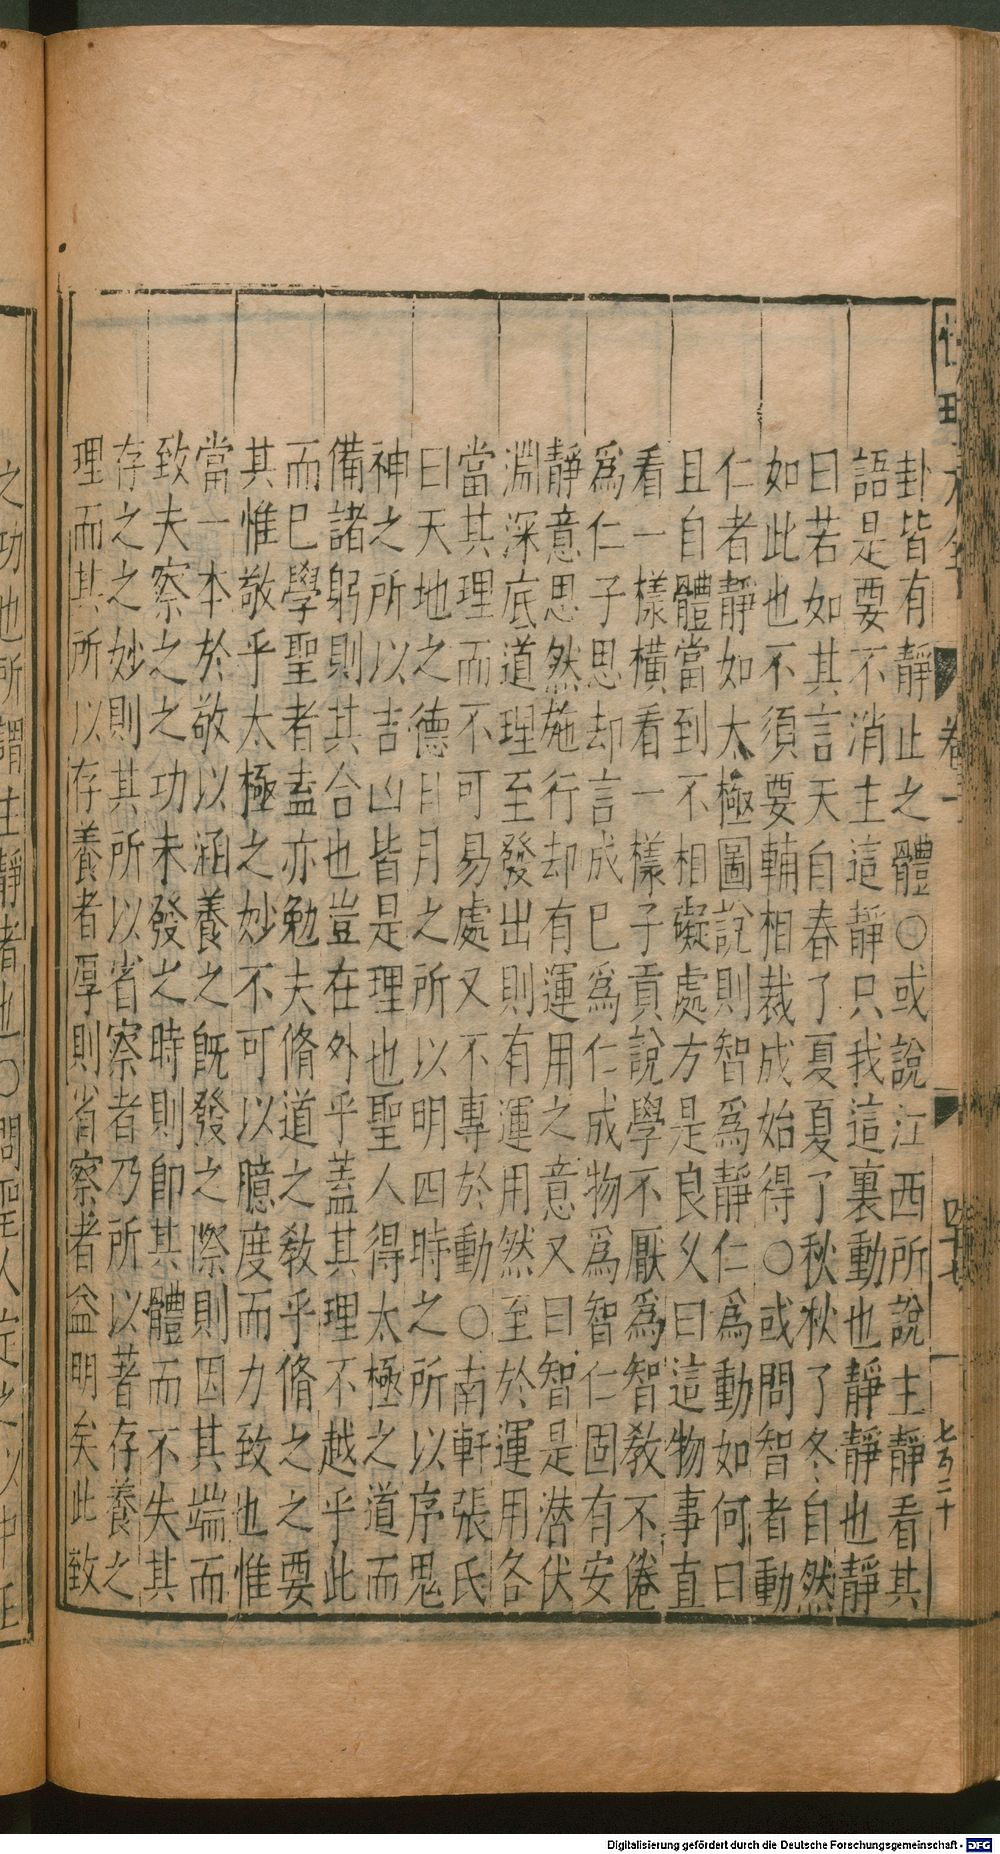 卦皆有靜止之體○或說江西所說主靜看其
語是要不消主這靜只我這裏動也靜靜也靜
曰若如其言天自春了夏夏了秋秋了冬自然
如此也不須要輔相裁成始得○或問智者動
仁者靜如太極圖說則智爲靜仁爲動如何曰
且自體當到不相礙處方是良乆曰這物事直
看一樣橫看一樣子貢說學不厭爲智教不倦
爲仁子思却言成巳爲仁成物爲智仁固有安
靜意思然施行却有運用之意又曰智是潜伏
淵深底道理至發出則有運用然至於運用各
當其理而不可易處又不專於動○南軒張氏
曰天地之德日月之所以明四時之所以序鬼
神之所以吉凶皆是理也聖人得太極之道而
備諸躬則其合也豈在外乎蓋其理不越乎此
而巳學聖者盍亦勉夫脩道之教乎脩之之要
其惟敬乎太極之妙不可以臆度而力致也惟
當一本於敬以涵養之旣發之際則因其端而
致夫察之之功未發之時則卽其體而不失其
存之之妙則其所以省察者乃所以著存養之
理而其所以存養者厚則省察者益明矣此致
卷一
七百二十
之功也所謂主靜者也○問聖人定之以中正
Digitalisierung gefördert durch die Deutsche Forschungsgemeinschaft - DFG